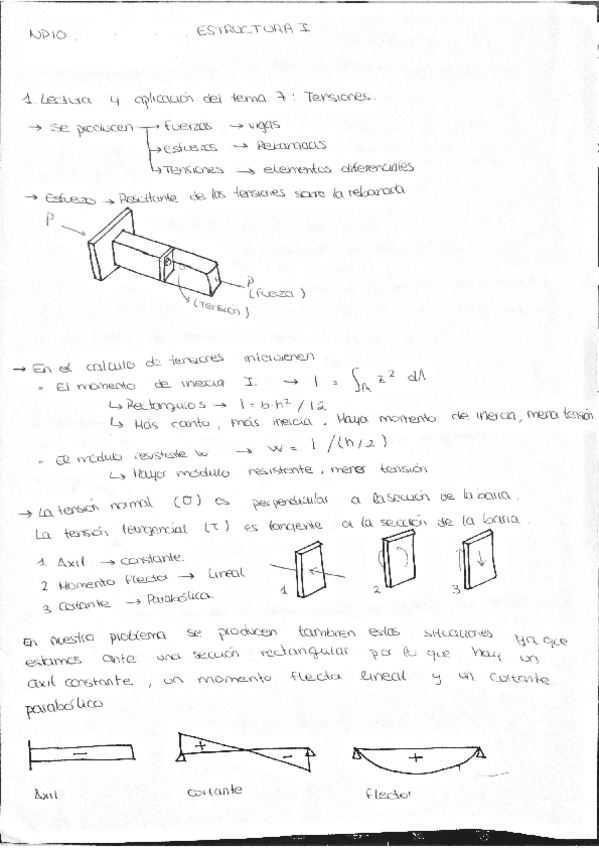 NP10. ESTRUCTURA I
1. Lectura y aplicación del tema 7: Tensiones.
→ Se producen → Fuerzas → vigas
→ Esfuerzos → Rebanadas
→ Tensiones → elementos diferenciales
→ Esfuerzo → Resultante de las tensiones sobre la rebanada
P
P
(fuerza)
(tensión)
→ En el calculo de tensiones intervienen
• El momento de inercia I → I = ∫A z² dA
↳ Rectangulos → I = b·h² / 12
↳ Más canto, más inercia. Mayor momento de inercia, menor tensión
• El módulo resistente W → W = I /(h/2)
↳ Mayor módulo resistente, menor tensión
→ La tensión normal (σ) es perpendicular a la sección de la barra.
La tensión tangencial (τ) es tangente a la sección de la barra.
1 Axil → constante.
2 Momento flector → Lineal
3 Cortante → Parabólica.
1 2 3
En nuestro problema se producen tambien estas situaciones ya que
estamos ante una sección rectangular por lo que hay un
axil constante, un momento flector lineal y un cortante
parabólico
− + − +
Axil cortante flector